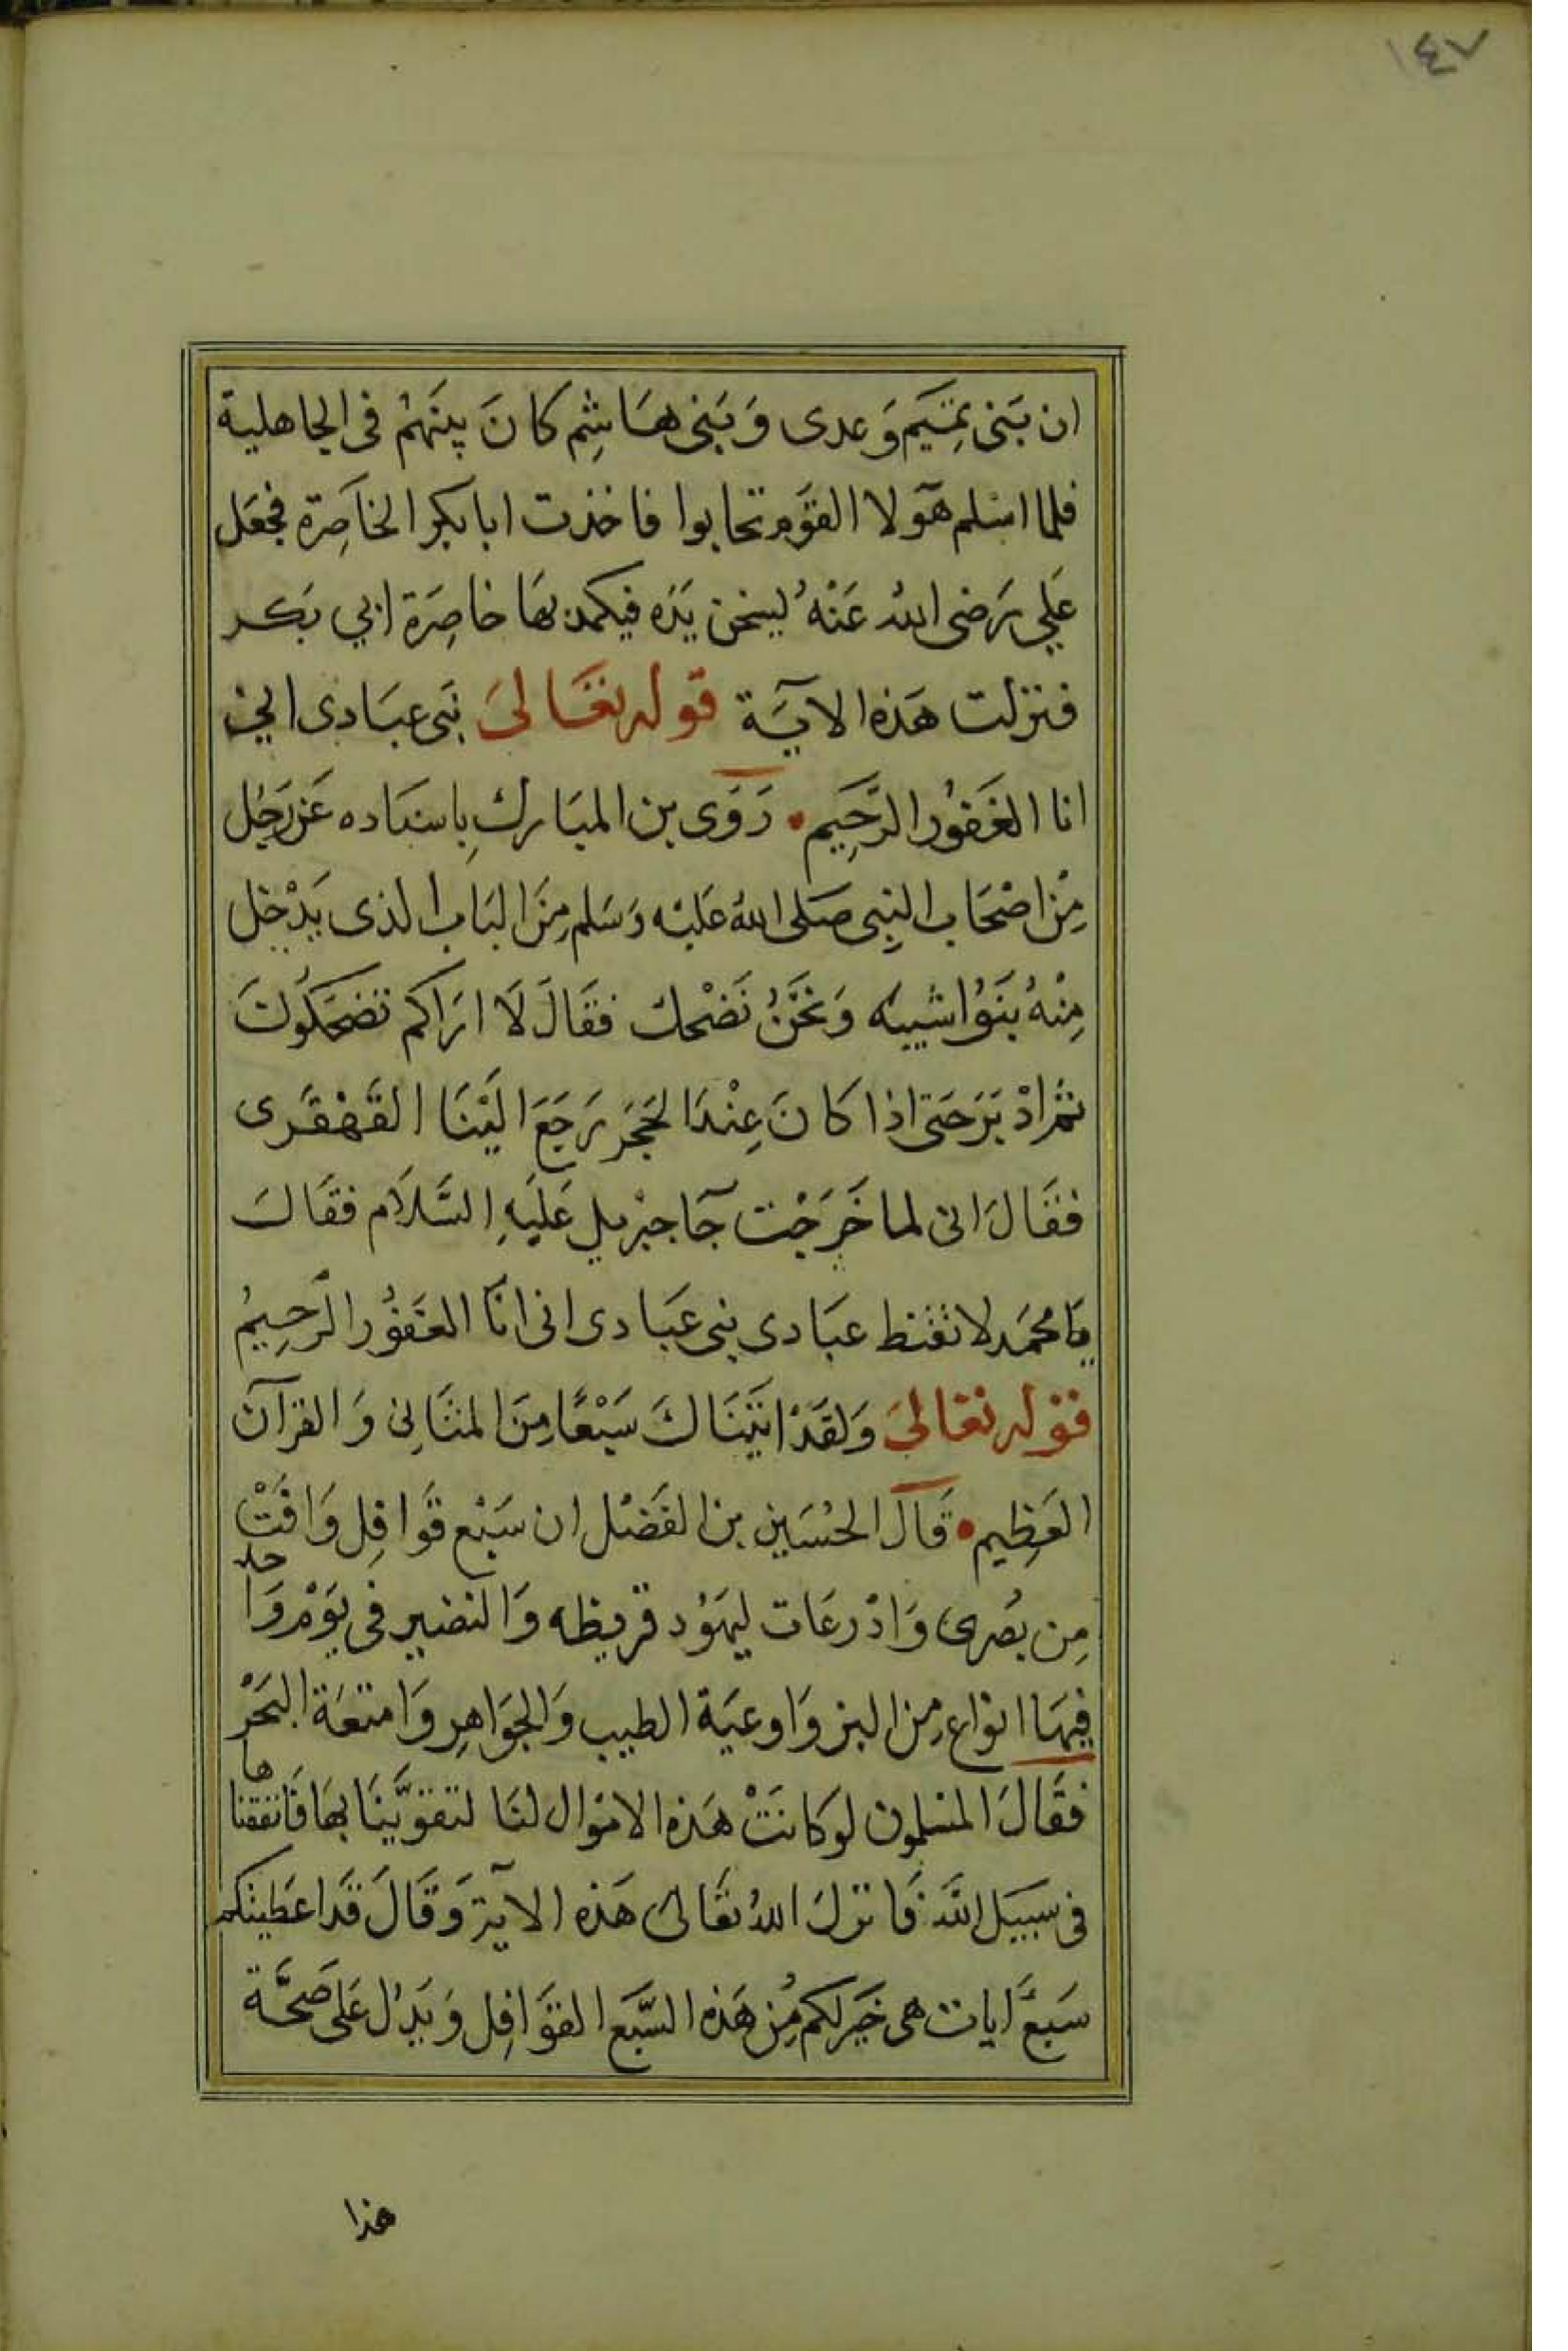 ١٤٧
ان بَنى تميَم وَعدى وَبَنى هاشِم كانَ بينَهُم فى الجاهلية
فلما اسْلم هَولا القوَم تحابوا فاخذت ابا بكر الخاصَرة فجعَل
عَلِي رَضى اللهُ عَنْهُ ليسخن يَدَه فيكمد بهَا خاصِرَة ابي بَكر
فنزلت هَذه الآيَة قوله تعَالىَ نبَى عبَادى اني
انا الغَفوُر الرَّحِيَم رَوَى بن المبَارك بِاسنَاده عَن رَجُل
مِنْ اصْحَاب النبِى صَلى اللهُ عَليْه وَسَلم مِنَ البَاب الذى يَدْخل
مِنْهُ بَنوُا شيبَه وَنَحْنُ نَضْحك فقَالَ لَا ارَاكم تضحَكُونَ
ثم ادْبَرَ حَتى اذا كانَ عِنْدَ الحَجَر رَجَعَ اليْنَا القَهْقَرى
فقَالَ انى لما خَرَجْت جَآ جبْريل عَلَيْهِ السَّلَام فقَالَ
يَا محَمَد لا تقنط عبَادى نبى عَبَادى انى انَا الغَفوُر الرَّحِيمُ
قوله تعَالىَ وَلقَدْ اتَيْنَاكَ سَبْعًا مِنَ المثَانِى وَالقرآن
العَظِيم قَالَ الحُسَين بن الفَضْل ان سَبْع قَوافِل وَافَتْ
مِن بصُرى وَادْرعَات ليهَوُد قريظه وَالنضير فى يَوْم وَاحد
فِيهَا انوَاع مِن البز وَاوعيَة الطيب وَالجوَاهِر وَامتعَة البَحْر
فقَالَ المسْلمون لو كانَتْ هَذه الامْوال لنَا لتقوَّينَا بهَا فَانفقناها
فى سبيَل الله فَانزلَ اللهُ تعَالىَ هَذه الآية وَقَالَ قَد اعَطيتكم
سَبعَ ايات هى خَير لكم مِن هَذه السَّبَع القوَافِل وَيَدلُ عَلى صَحَّة
هذا